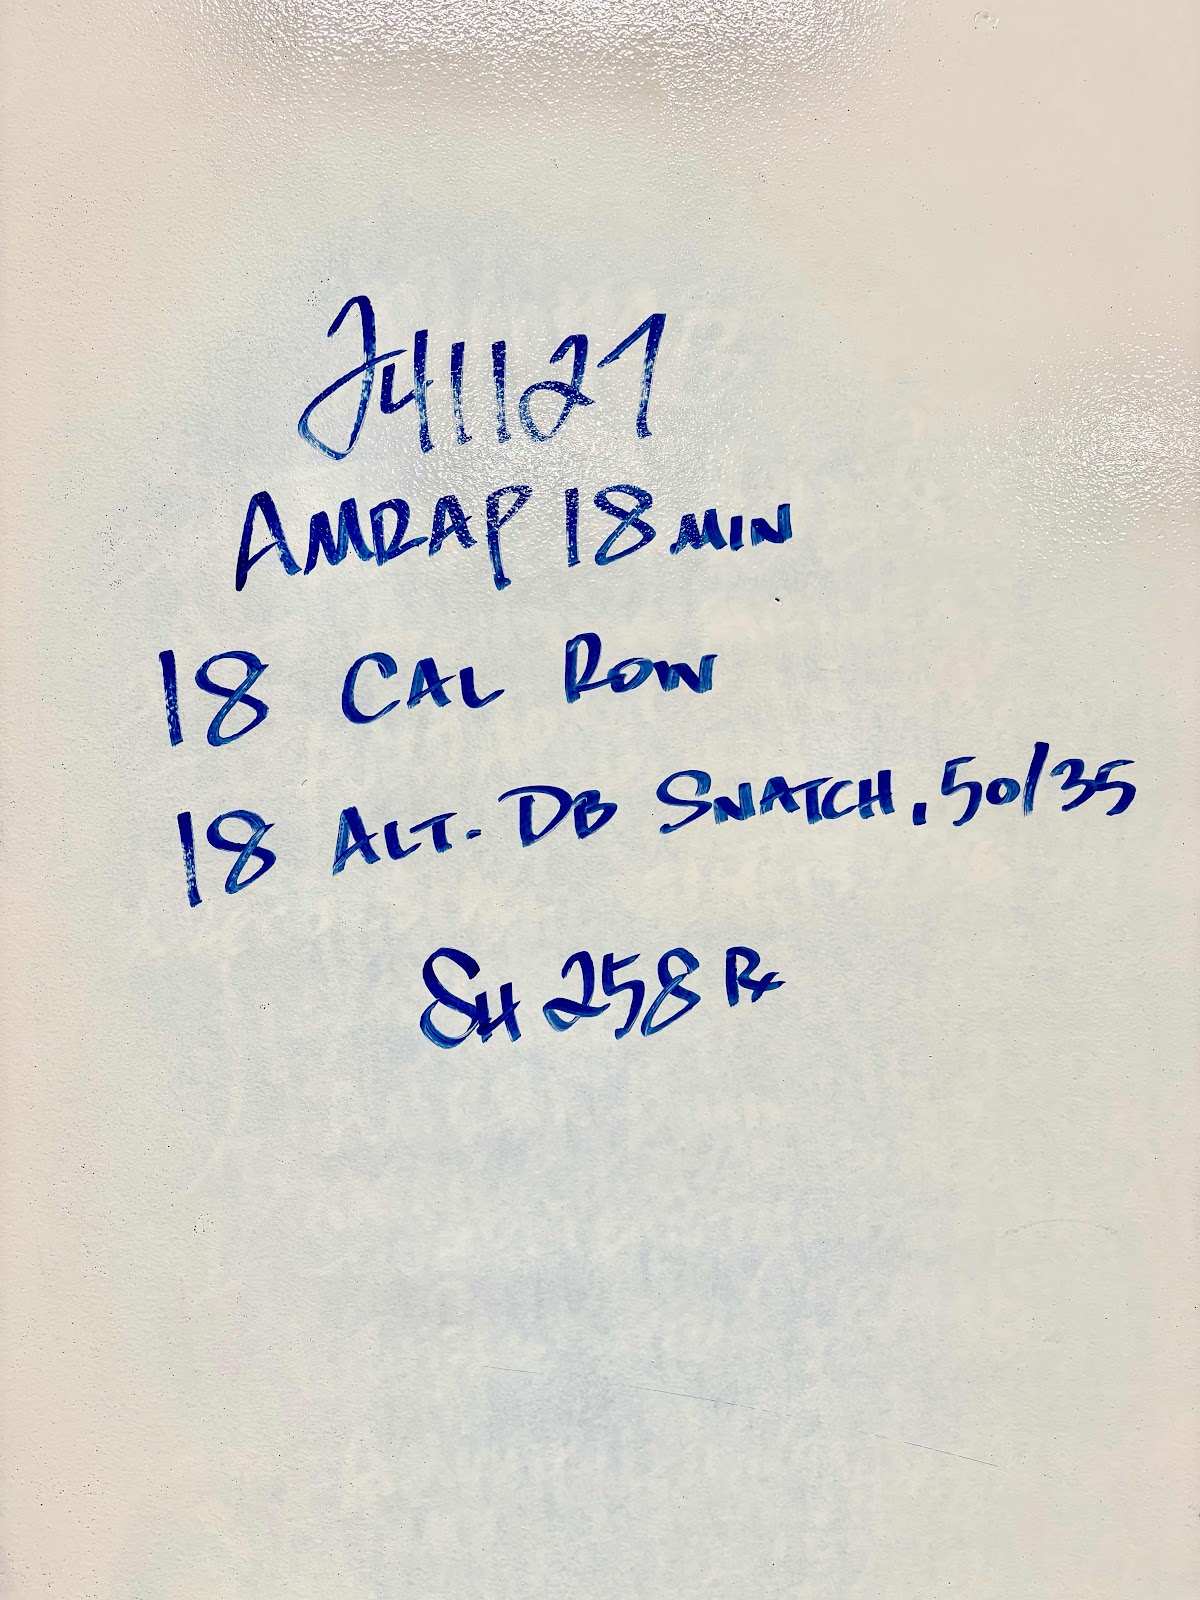 241127
AMRAP 18 MIN
18 CAL ROW
18 ALT. DB SNATCH, 50/35
SH 258 Rx